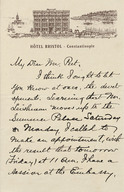 HÔTEL BRISTOL - Constantinople
My Dear Mr.
I think I ought to let
you know at once, the
Learning that Mr.
moved up to the
Summer Palace Saturday
or Monday, I called to
make an appointment, with
the result that tomorrow
(Friday) at 11 A.M. I have a
session at the Embassy.